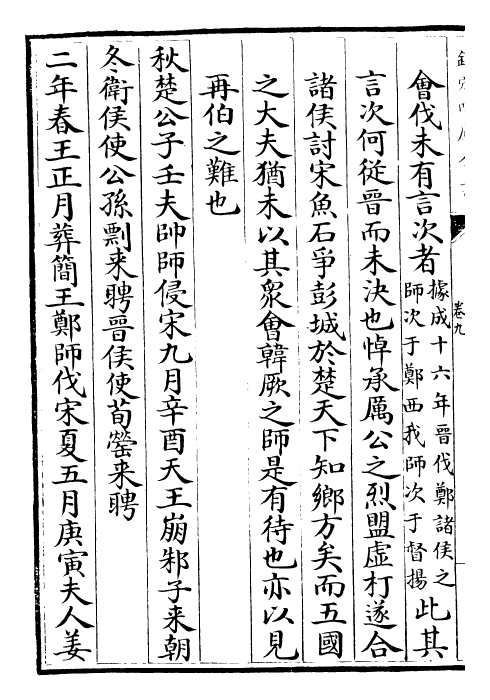 卷九
會伐未有言次者據成十六年晉伐鄭諸侯之師次于鄭西我師次于督揚此其
言次何從晉而未決也悼承厲公之烈盟虛朾遂合
諸侯討宋魚石爭彭城於楚天下知鄉方矣而五國
之大夫猶未以其衆會韓厥之師是有待也亦以見
再伯之難也
秋楚公子壬夫帥師侵宋九月辛酉天王崩邾子来朝
冬衛侯使公孫剽来聘晉侯使荀罃来聘
二年春王正月葬簡王鄭師伐宋夏五月庚寅夫人姜